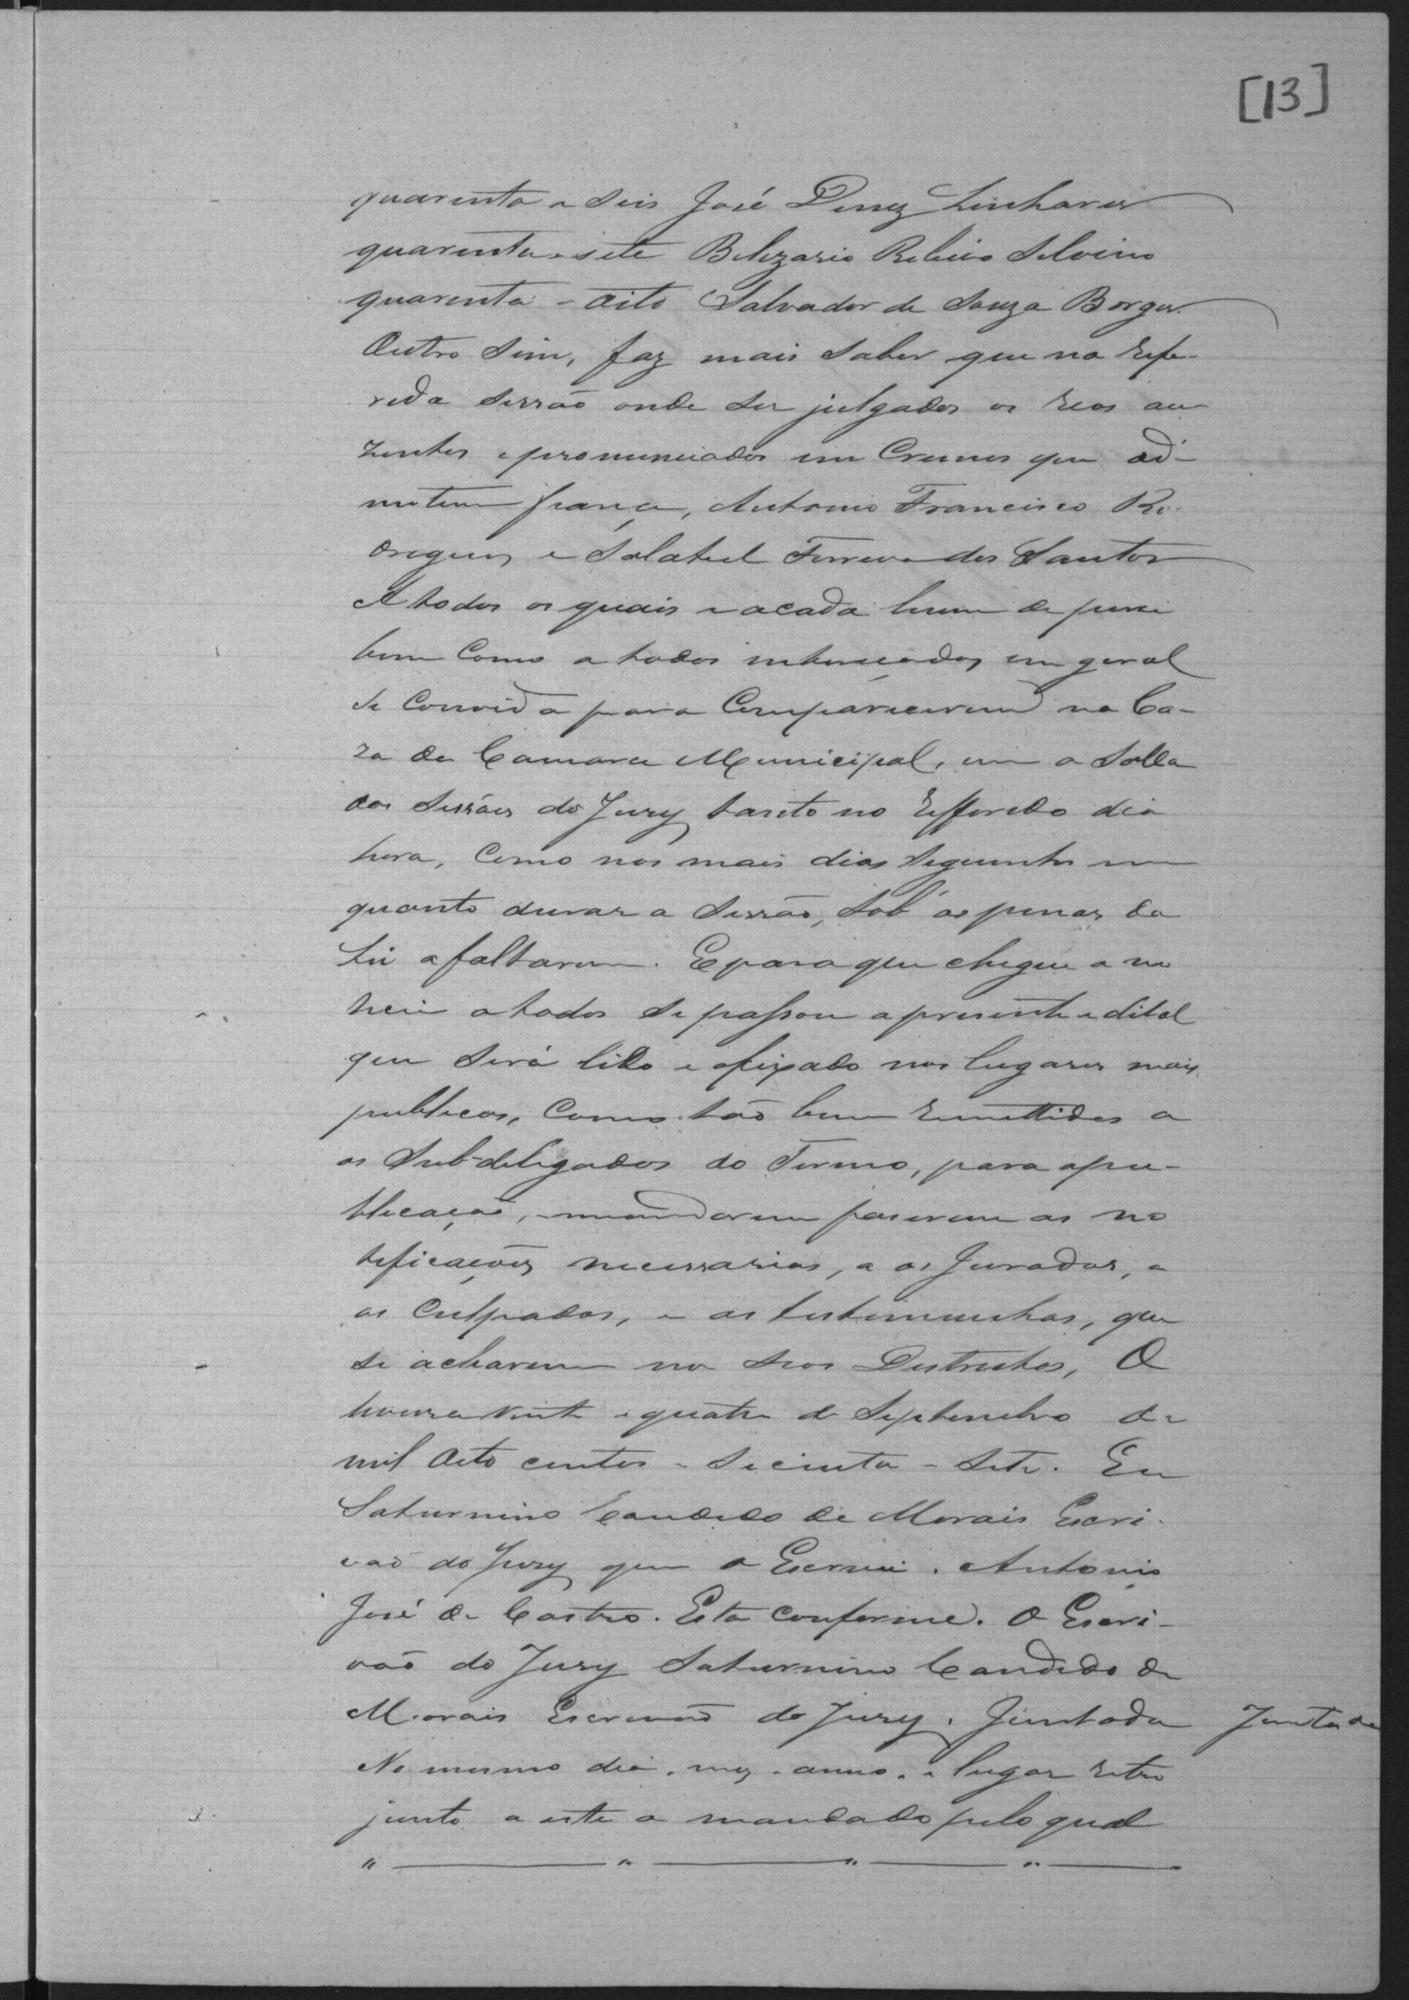 [13]
quarenta e seis José Diniz Linhares
quarenta e sete Belizario Ribeiro Silvino
quarenta e oito Salvador de Souza Borges.
Outro sim, faz mais saber que na refe-
rida sessão onde ser julgados os reos au
zentes e pronunciados em Crimes que ad-
mitem fiança, Antonio Francisco Ro-
drigues, e Salatiel Ferreira dos Santos
A todos os quais e a cada hum de per si
bem Como a todos interessados, em geral
se Convida para Comparecerem na Ca-
za da Camara Municipal, em a Salla
das Sessões do Jury tanto no Refferido dia
hora, Como nos mais dias Seguintes em
quanto durar a Sessão, Sob as penas da
Lei a faltarem. E para que chegue a no
ticia a todos se passou a presente edital
que Será lido e afixado nos lugares mais
publicos, Como tão bem remettidos a
os Sub-delegados do Termo, para apu-
blicação, e mandarem faserem as no
tificações necessarias, a os Jurados, a
os Culpados, e as testimunhas, que
se acharem no seos Districtos, O
vinte e quatro de Septembro de
mil oito centos e secenta e Sete. Eu
Saturnino Candido de Morais Escri-
vão do Jury que o Escrevi. Antonio
José de Castro. Esta conforme. O Escri-
vão do Jury Saturnino Candido de
Morais Escrivão do Jury. Juntada
Juntada
No mesmo dia, mez, anno, e lugar retro
junto a este o mandado pelo qual
" — " — " — " —